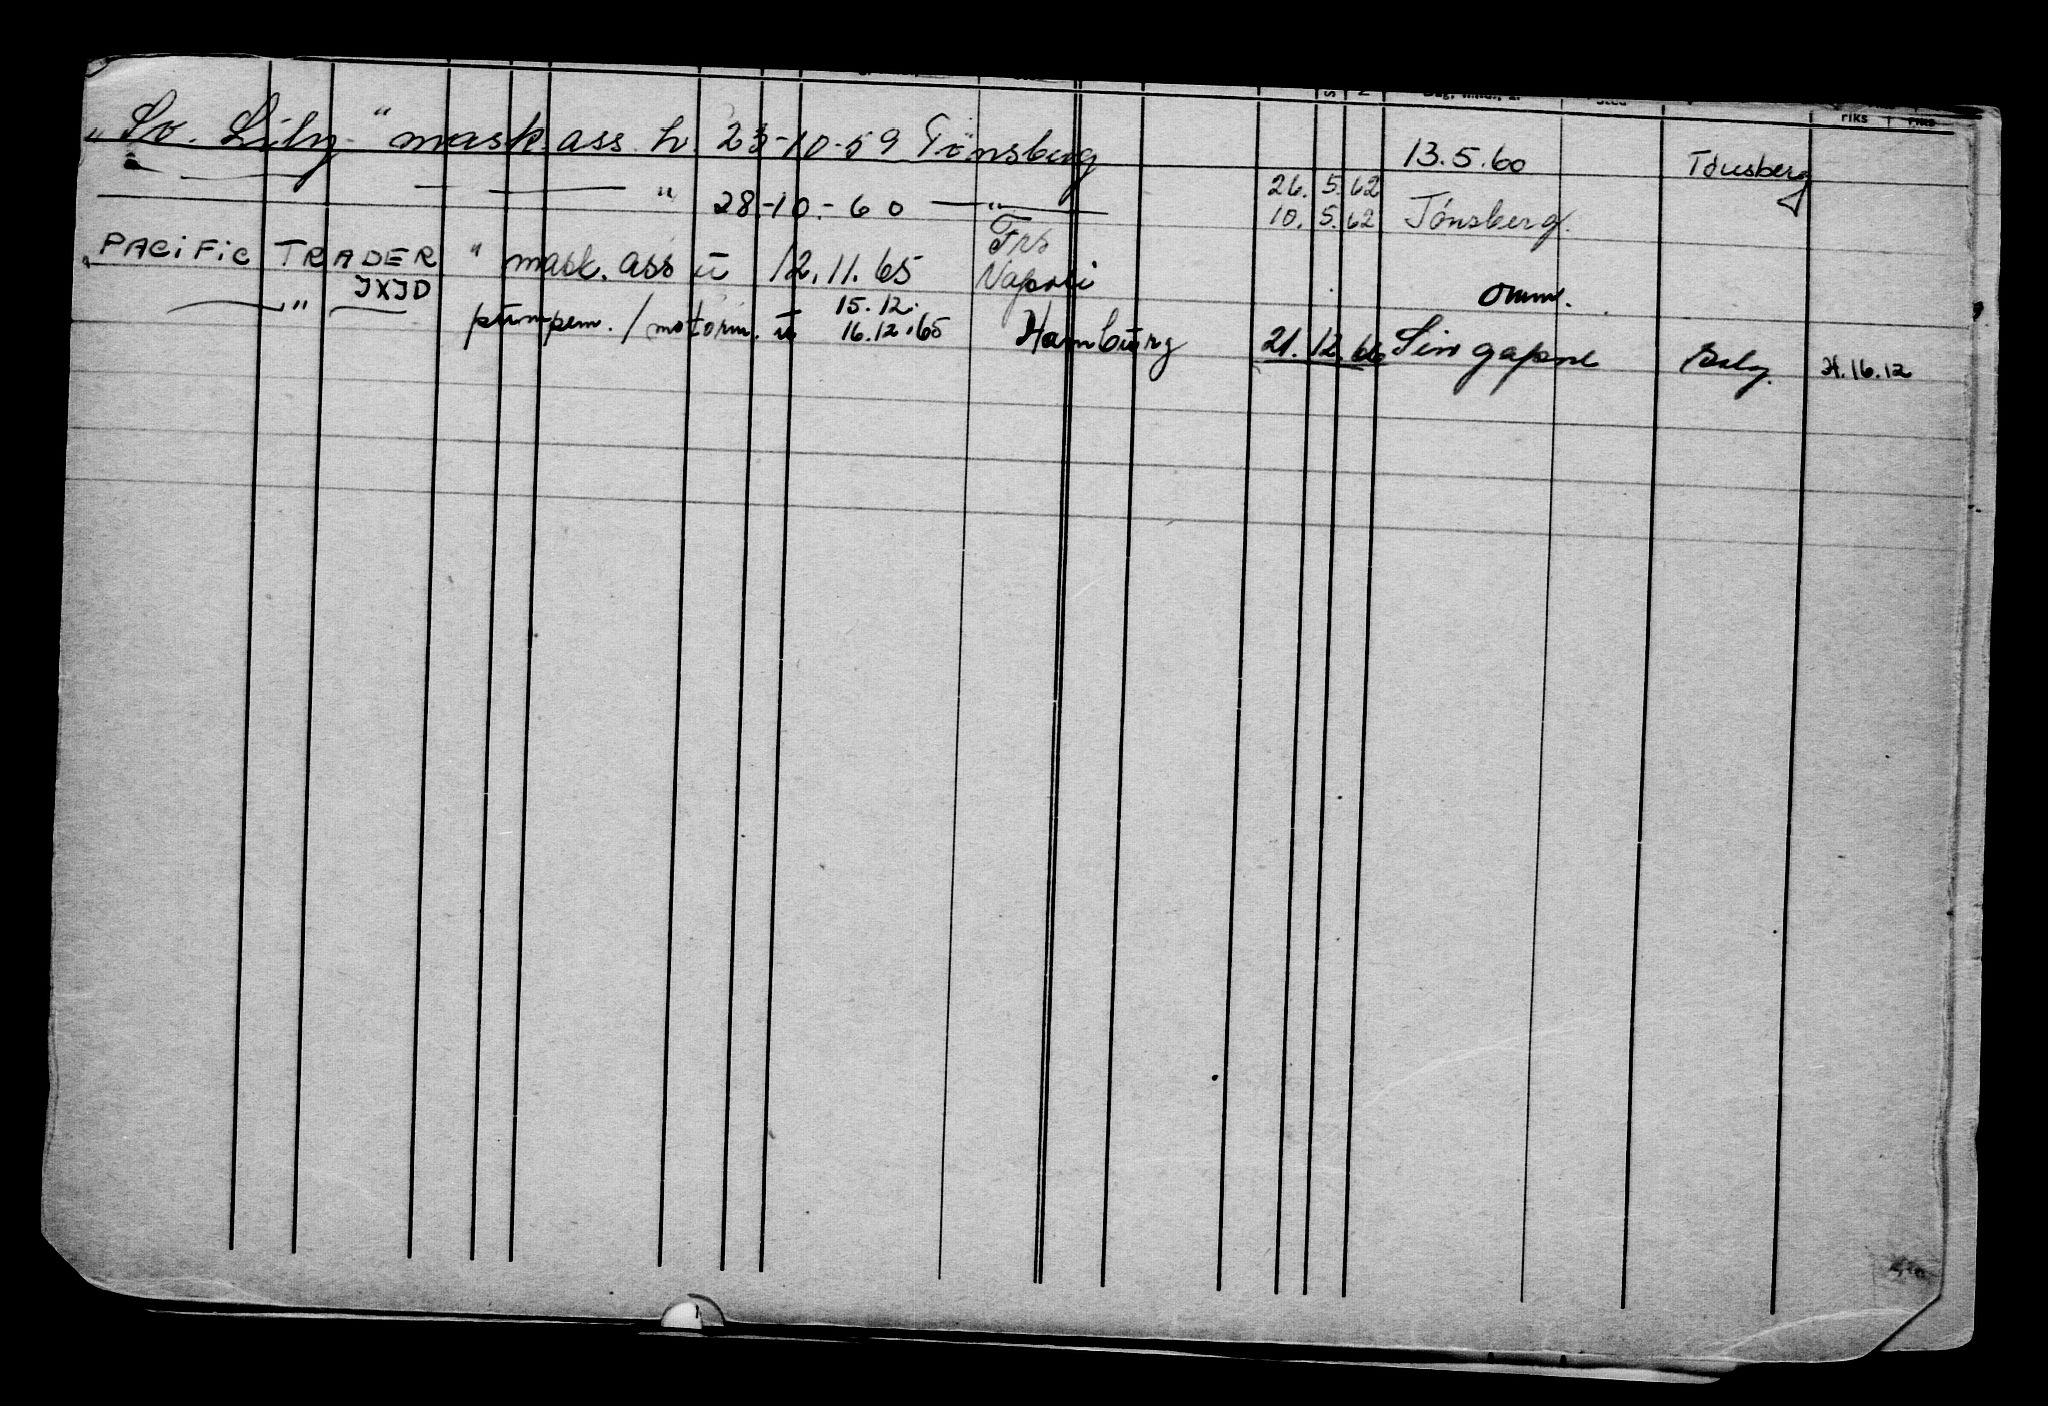 riks riks
„Sv. Lily" mask.ass. h 23-10-59 Tønsberg 13.5.60 Tönsberg
" 28.-10.-60 — " — 26. 5. 62
10. 5. 62 Tønsberg.
„PACiFiC TRADER" mask. ass ū 12.11.65 Napoli
JXJD omm.
— " — pumpem./motorm. ū 15.12.
16.12.65 Hamburg 21.12.66 Singapore 21.16.12